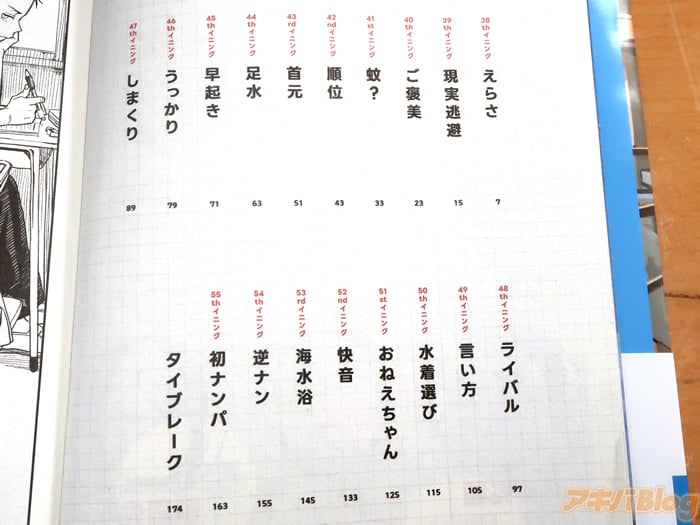 38thイニング えらさ 7
39thイニング 現実逃避 15
40thイニング ご褒美 23
41stイニング 蚊? 33
42ndイニング 順位 43
43rdイニング 首元 51
44thイニング 足水 63
45thイニング 早起き 71
46thイニング うっかり 79
47thイニング しまくり 89
48thイニング ライバル 97
49thイニング 言い方 105
50thイニング 水着選び 115
51stイニング おねえちゃん 125
52ndイニング 快音 133
53rdイニング 海水浴 145
54thイニング 逆ナン 155
55thイニング 初ナンパ 163
タイブレーク 174
アキバBlog